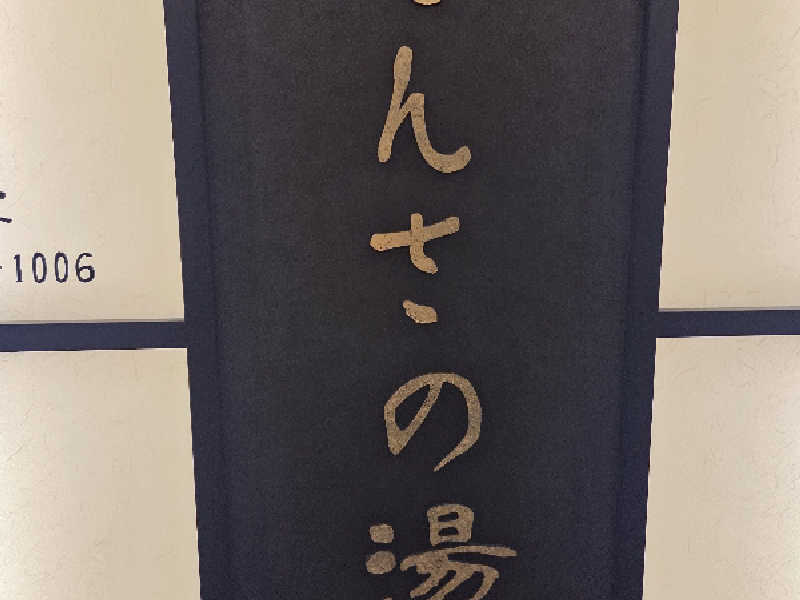 んさの湯
1006